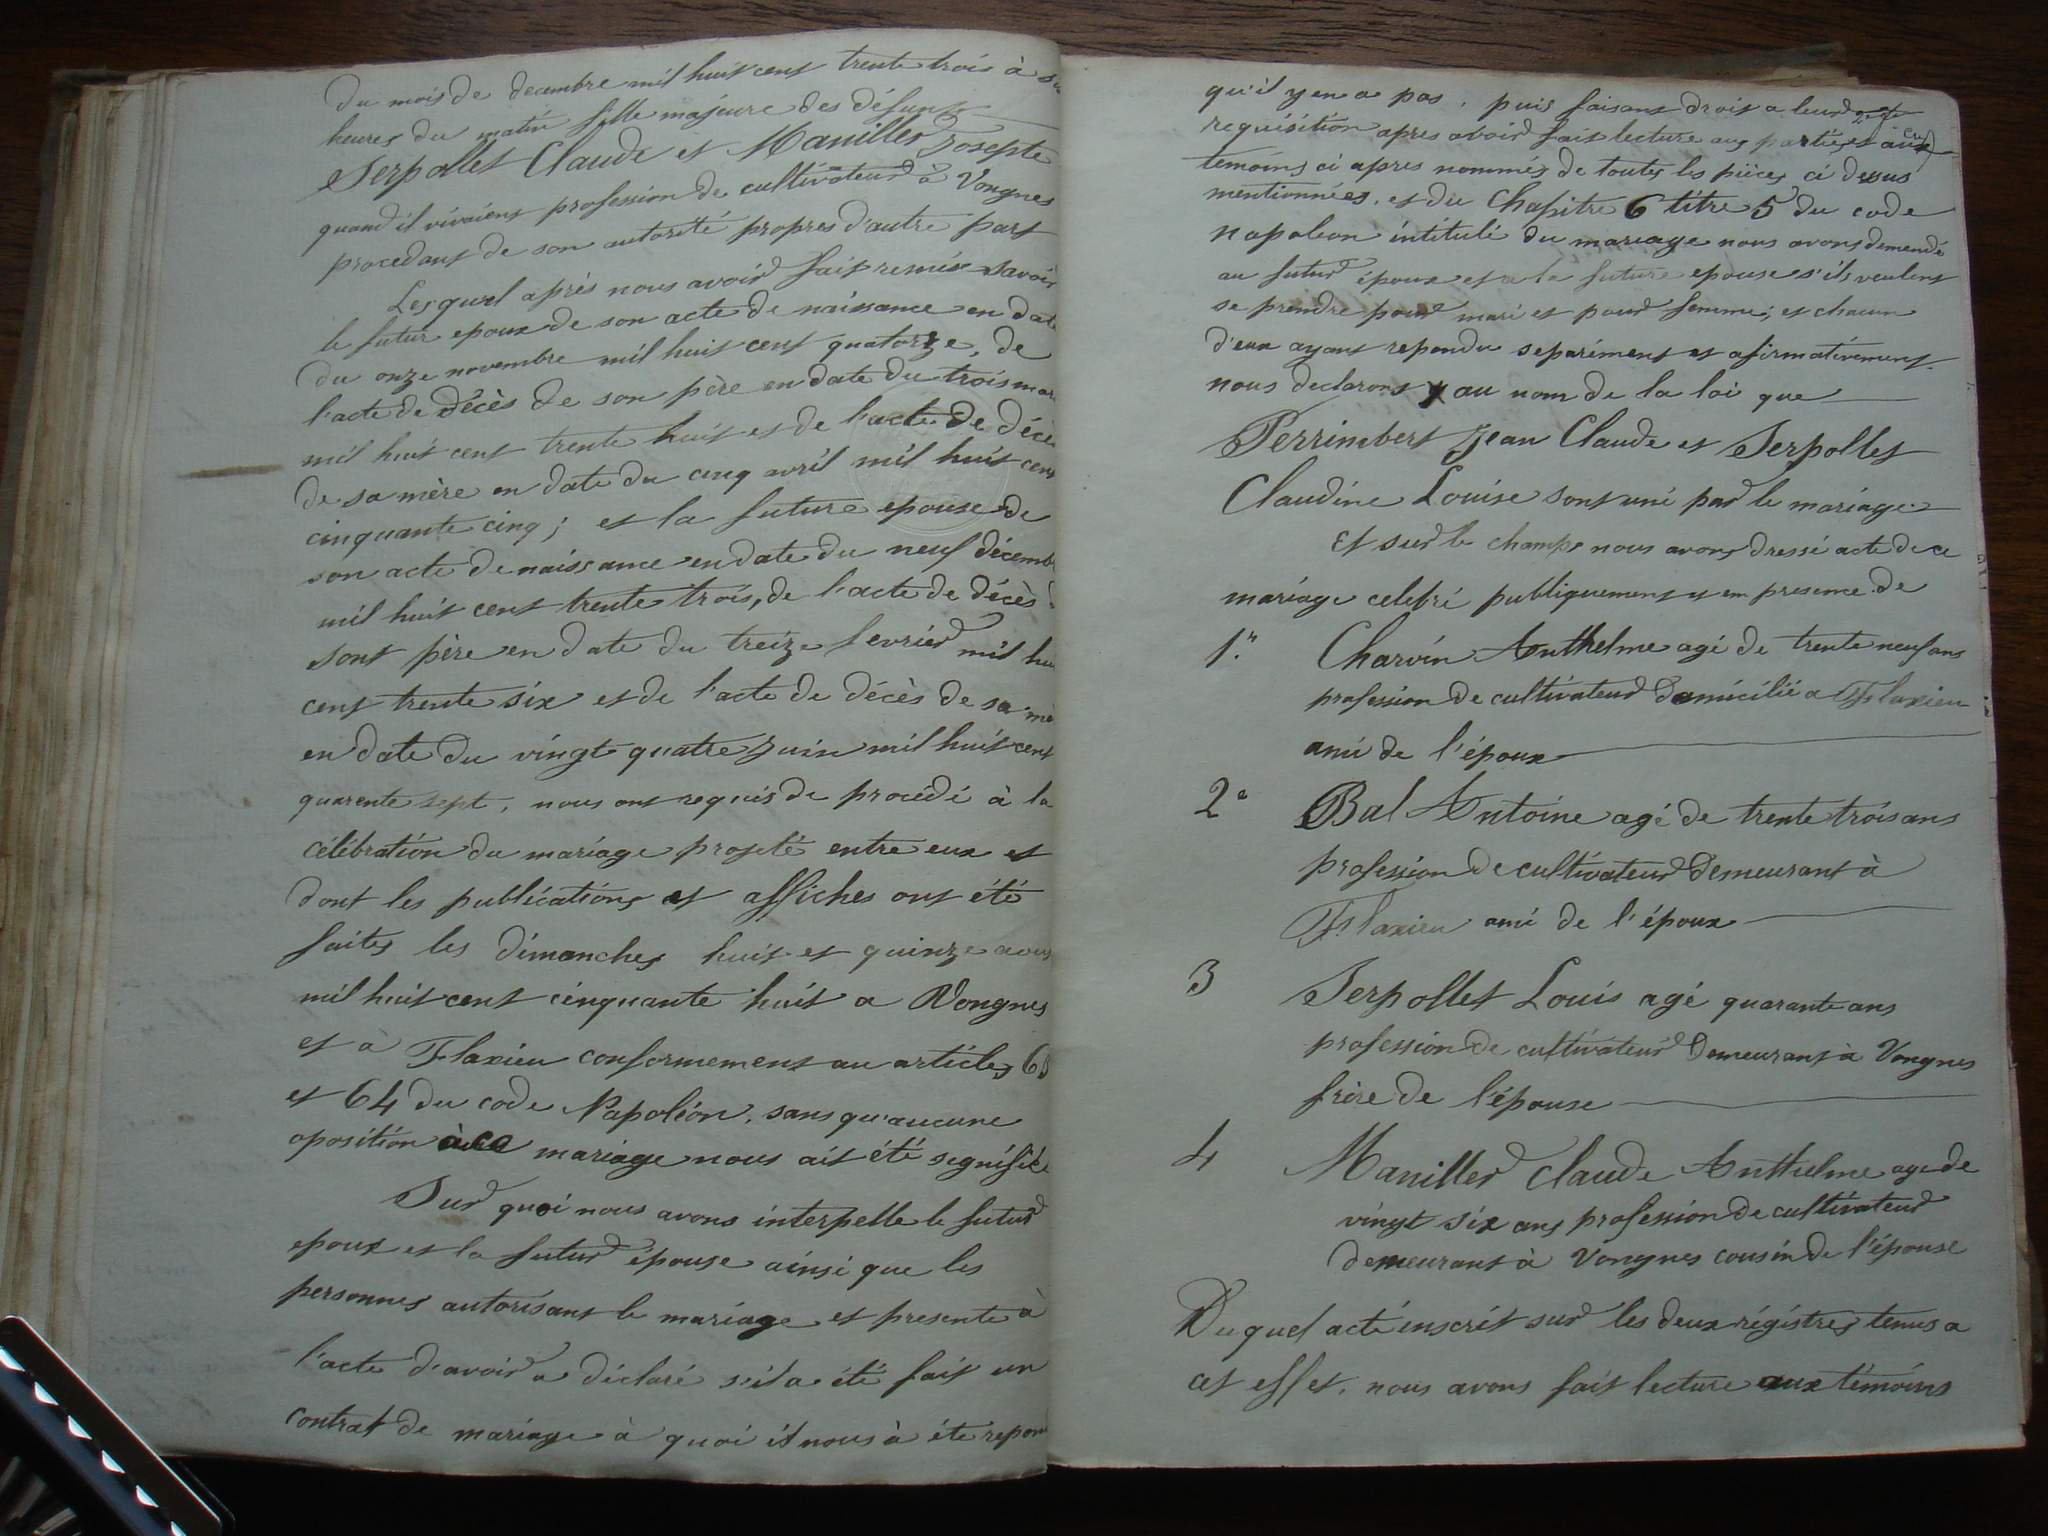 du mois de decembre mil huit cent trente trois à
heures du matin fille majeure des défunts
Serpollet Claude et Maniller Josepte
quand il vivaient profession de cultivateur à Vongnes
procedant de son autorité propres d'autre part
Lesquel après nous avoir fait remis savoir
le futur epoux de son acte de naissance en date
du onze novembre mil huit cent quatorze, de
l'acte de décès de son père en date du trois mars
mil huit cent trente huit et de l'acte de décès
de sa mère en date du cinq avril mil huit cent
cinquante cinq; et la future epouse de
son acte de naissance en date du neuf décembre
mil huit cent trente trois, de l'acte de décès
sont père en date du treize fevrier mil huit
cent trente six et de l'acte de décès de sa mè
en date du vingt quatre juin mil huit cent
quarente sept, nous ont requis de procédé à la
célébration du mariage projeté entre eux et
dont les publications et affiches ont été
faites les dimanches huit et quinze aout
mil huit cent cinquante huit a Vongnes
et à Flaxieu conformement au articles 63
et 64 du code Napoléon, sans qu'aucune
oposition à ce mariage nous ait été segnifiée
Sur quoi nous avons interpelle le futur
epoux et la futur épouse ainsi que les
personnes autorisant le mariage et presente à
l'acte d'avoir a déclaré s'il a été fait un
contrat de mariage à quoi il nous à été repon
qu'il y en a pas, puis faisant droit a leur
requisition apres avoir fait lecture aux parties aux
temoins ci apres nommés de toutes les pièces ci dessus
mentionnées, et du Chapitre 6 titre 5 du code
napoleon intitulé du mariage nous avons demendé
au futur époux et a la future epouse s'ils veulent
se prendre pour mari et pour femme; et chacun
d'eux ayant repondu separément et afirmativement
nous declarons au nom de la loi que
Perrimbert Jean Claude et Serpollet
Claudine Louise sont uni par le mariage
Et sur le champs nous avons dressé acte de ce
mariage celebré publiquement en presence de
1.° Charvin Anthelme agé de trente neuf ans
profession de cultivateur domicilié a Flaxieu
ami de l'époux
2° Bal Antoine agé de trente trois ans
profession de cultivateur demeurant à
Flaxieu ami de l'époux
3 Serpollet Louis agé quarante ans
profession de cultivateur demeurant à Vongnes
frère de l'épouse
4 Maniller Claude Anthelme age de
vingt six ans profession de cultivateur
demeurant à Vongnes cousin de l'épouse
Du quel acte inscrit sur les deux régistres tenus a
cet effet, nous avons fait lecture aux témoins